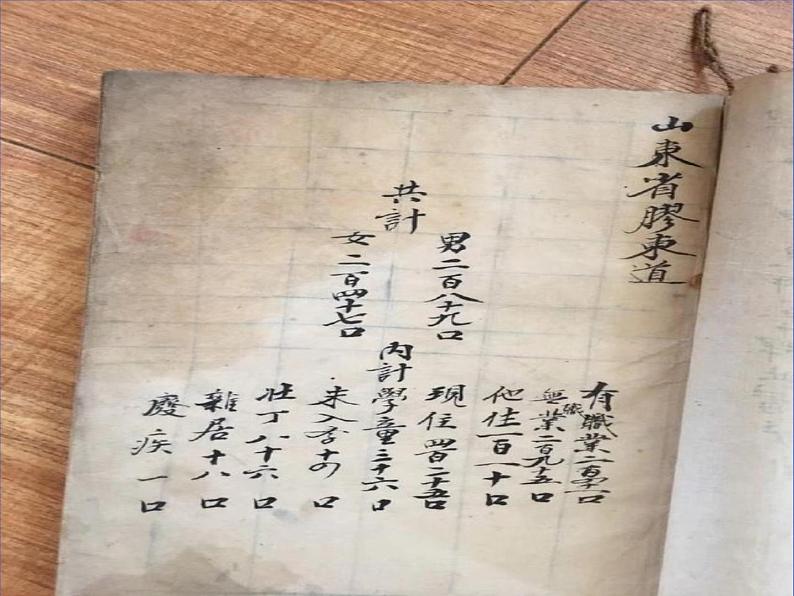 山東省膠東道
共計
男二百八十九口
女二百四十七口
內計
有職業二百四十一口
無職業二百九十五口
他住一百一十口
現住四百二十五口
學童三十六口
未入斈十四口
壯丁八十六口
雜居十八口
廢疾一口